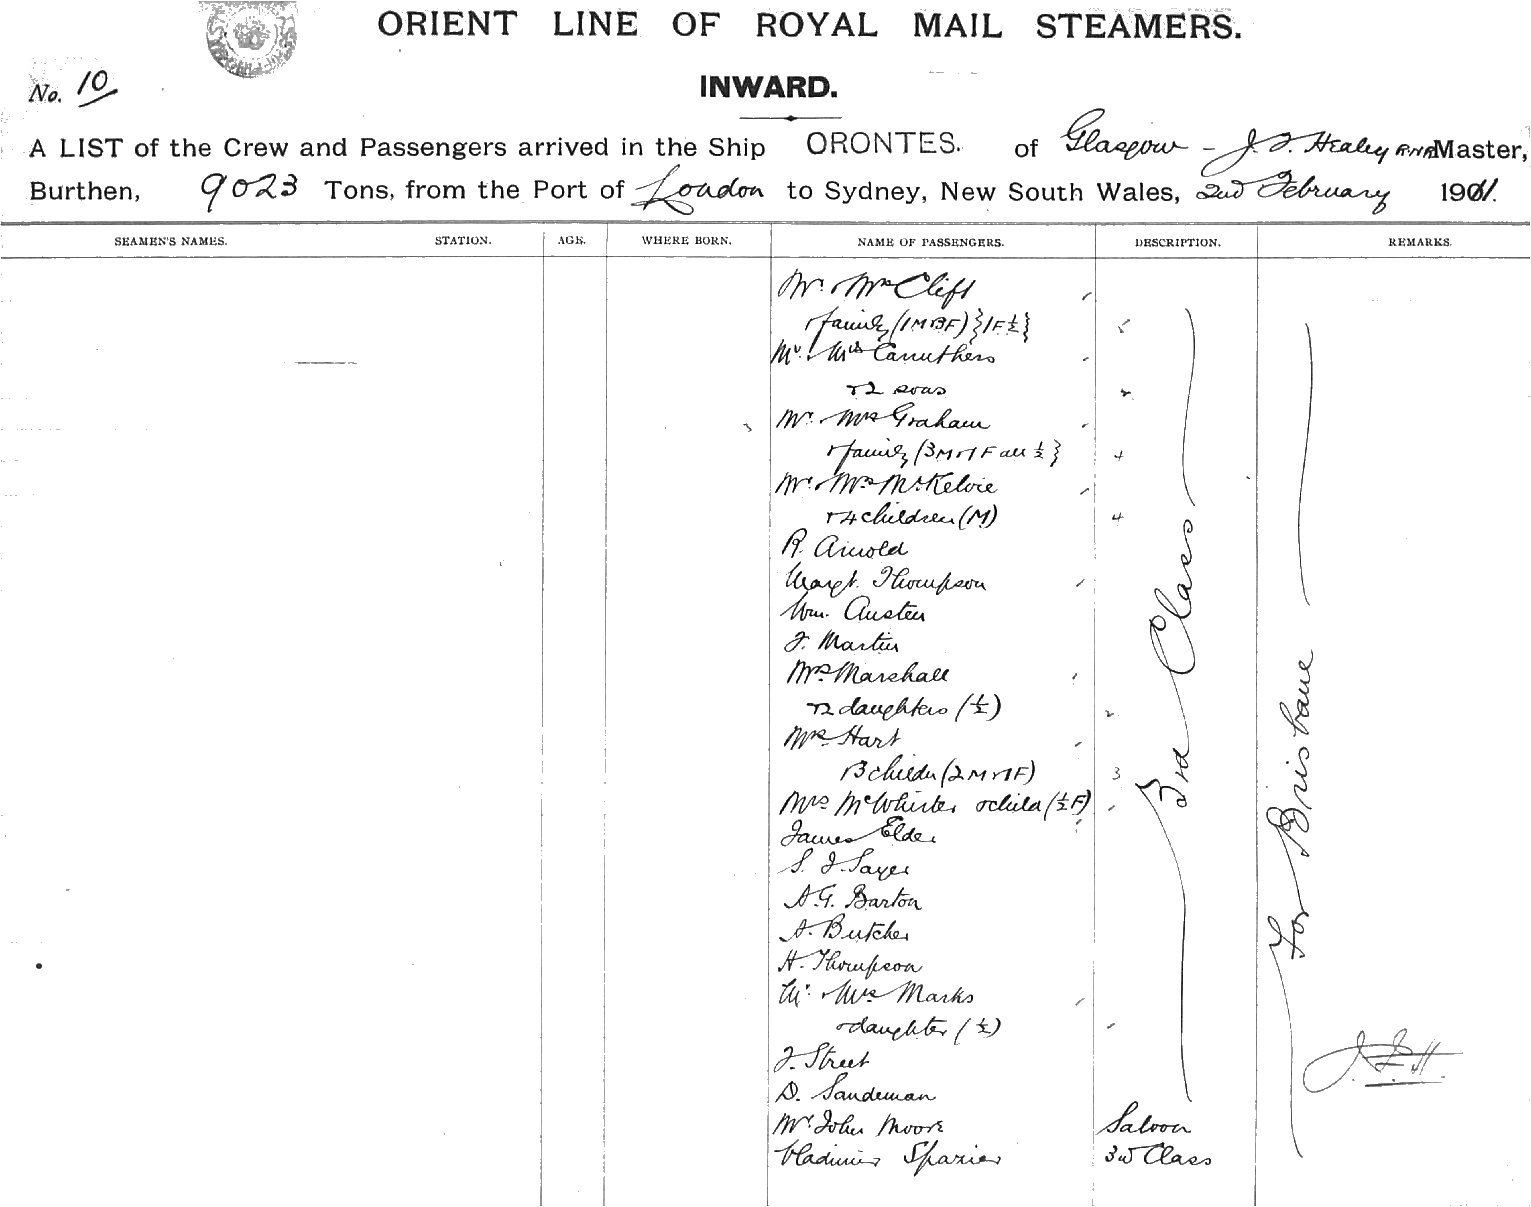 ORIENT LINE OF ROYAL MAIL STEAMERS.
No. 10
INWARD.
A LIST of the Crew and Passengers arrived in the Ship ORONTES. of Glasgow - J. F. Healey RNR Master,
Burthen, 9023 Tons, from the Port of London to Sydney, New South Wales, 2nd February 1911.
SEAMEN'S NAMES. STATION. AGE. WHERE BORN. NAME OF PASSENGERS. DESCRIPTION. REMARKS.
Mr. + Mrs Clift
+ family (1M 3F) } 1F ½ }
Mr. + Mrs Carruthers
+ 2 sons 2
Mr. + Mrs Graham
+ family (3M + 1F all ½ } 4
Mr. + Mrs McKelvie
+ 4 children (M) 4
R. Arnold
Margt. Thompson
Wm. Austen
F. Martin
Mrs Marshall
+ 2 daughters (½) 2
Mrs Hart
+ 3 childn (2M + 1F) 3
Mrs McWhirter + child (½ F)
James Elder
S. J. Sayer
A. G. Barton
A. Butcher
H. Thompson
Mr. + Mrs Marks
+ daughter (½)
J. Street
D. Sandeman
Mr. John Moore Saloon
Vladimir 3rd Class
3rd Class
For Brisbane
J. F. H.